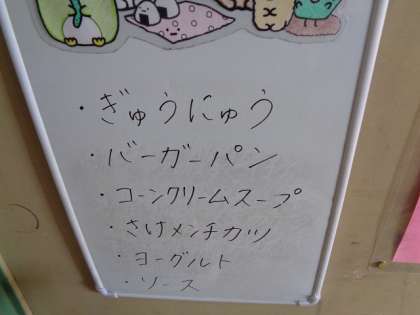 ・ぎゅうにゅう
・バーガーパン
・コーンクリームスープ
・さけメンチカツ
・ヨーグルト
・ソース